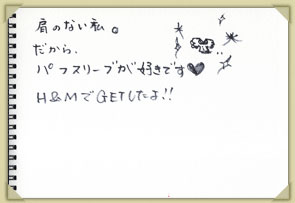 肩のない私。
だから、
パフスリーブが好きです♥
H&MでGETしたよ!!